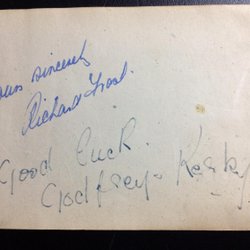 Yours sincerely
Richard Frost.
Good luck.
Godfrey Kenby